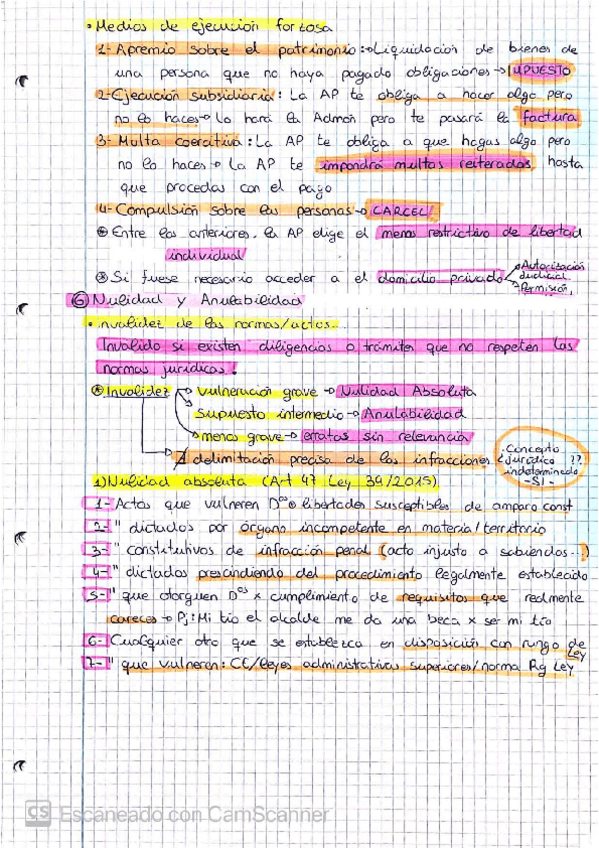 • Medios de ejecución forzosa
1- Apremio sobre el patrimonio: Liquidación de bienes de
una persona que no haya pagado obligaciones → IMPUESTO
2- Ejecución subsidiaria: La AP te obliga a hacer algo pero
no lo haces → Lo hará la Admón pero te pasará la factura
3- Multa coercitiva: La AP te obliga a que hagas algo pero
no lo haces → La AP te impondrá multas reiteradas hasta
que procedas con el pago
4- Compulsión sobre las personas → CARCEL
⊛ Entre los anteriores, la AP elige el menos restrictivo de libertad
individual
⊛ Si fuese necesario acceder a el domicilio privado → Autorización
Judicial
→ Permisión
⑥ Nulidad y Anulabilidad
• Invalidez de las normas/actos
Invalido si existen diligencias o trámites que no respeten las
normas jurídicas.
⊛ Invalidez → Vulneración grave → Nulidad Absoluta
Supuesto intermedio → Anulabilidad
→ menos grave → erratas sin relevancia
→ ∄ delimitación precisa de las infracciones
Concepto
¿jurídico ??
indeterminado
- SI -
1) Nulidad absoluta (Art 47 Ley 39/2015)
1- Actos que vulneren Dºs o libertades susceptibles de amparo const
2- " dictados por órgano incompetente en materia/territorio
3- " constitutivos de infracción penal (acto injusto a sabiendas...)
4- " dictados prescindiendo del procedimiento legalmente establecido
5- " que otorguen Dºs x cumplimiento de requisitos que realmente
careces → Pj: Mi tío el alcalde me da una beca x ser mi tío
6- Cualquier otro que se establezca en disposición con rango de
Ley
7- " que vulneren: CE/leyes administrativas superiores/norma Rg Ley
CS Escaneado con CamScanner